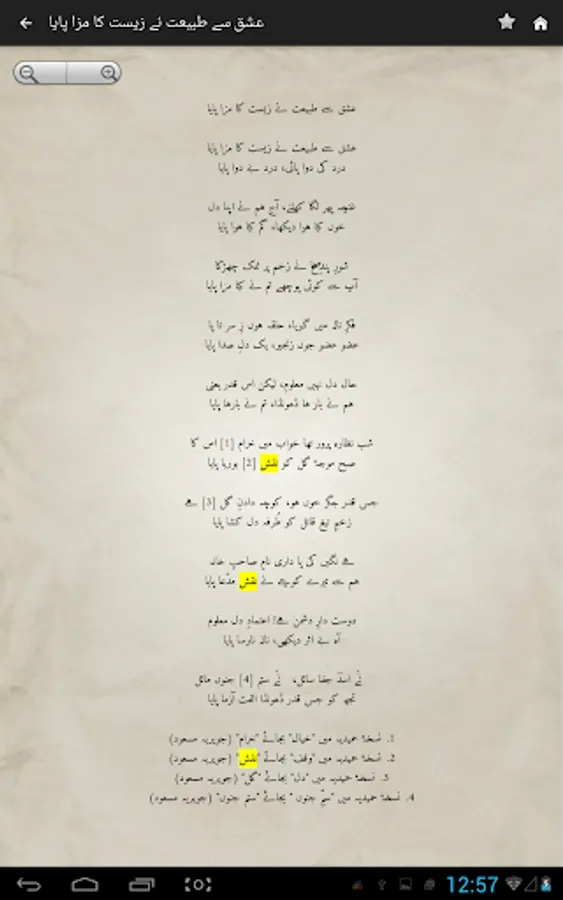 عشق سے طبیعت نے زیست کا مزا پایا
عشق سے طبیعت نے زیست کا مزا پایا
عشق سے طبیعت نے زیست کا مزا پایا
درد کی دوا پائی، درد بے دوا پایا
غنچہ پھر لگا کھلنے، آج ہم نے اپنا دل
خوں کیا ہوا دیکھا، گم کیا ہوا پایا
شورِ پندِ ناصح نے زخم پر نمک چھڑکا
آپ سے کوئی پوچھے تم نے کیا مزا پایا
فکرِ نالہ میں گویا، حلقہ ہوں زِ سر تا پا
عضو عضو جوں زنجیر، یک دلِ صدا پایا
حال دل نہیں معلوم، لیکن اس قدر یعنی
ہم نے بار ہا ڈھونڈا، تم نے بارہا پایا
شب نظارہ پرور تھا خواب میں خرام [1] اس کا
صبح موجۂ گل کو نقش [2] بوریا پایا
جس قدر جگر خوں ہو، کوچہ دادنِ گل [3] ہے
زخمِ تیغِ قاتل کو طُرفہ دل کشا پایا
ہے نگیں کی پا داری نامِ صاحبِ خانہ
ہم سے تیرے کوچے نے نقش مدّعا پایا
دوست دارِ دشمن ہے! اعتمادِ دل معلوم
آہ بے اثر دیکھی، نالہ نارسا پایا
نَے اسدؔ جفا سائل، نَے ستم [4] جنوں مائل
تجھ کو جس قدر ڈھونڈا الفت آزما پایا
1. نسخۂ حمیدیہ میں "خیال" بجائے "خرام" (جویریہ مسعود)
2. نسخۂ حمیدیہ میں "وقف" بجائے "نقش" (جویریہ مسعود)
3. نسخۂ حمیدیہ میں "دل" بجائے "گل" (جویریہ مسعود)
4. نسخۂ حمیدیہ میں "سمِّ جنوں " بجائے "ستم جنوں" (جویریہ مسعود)
12:57